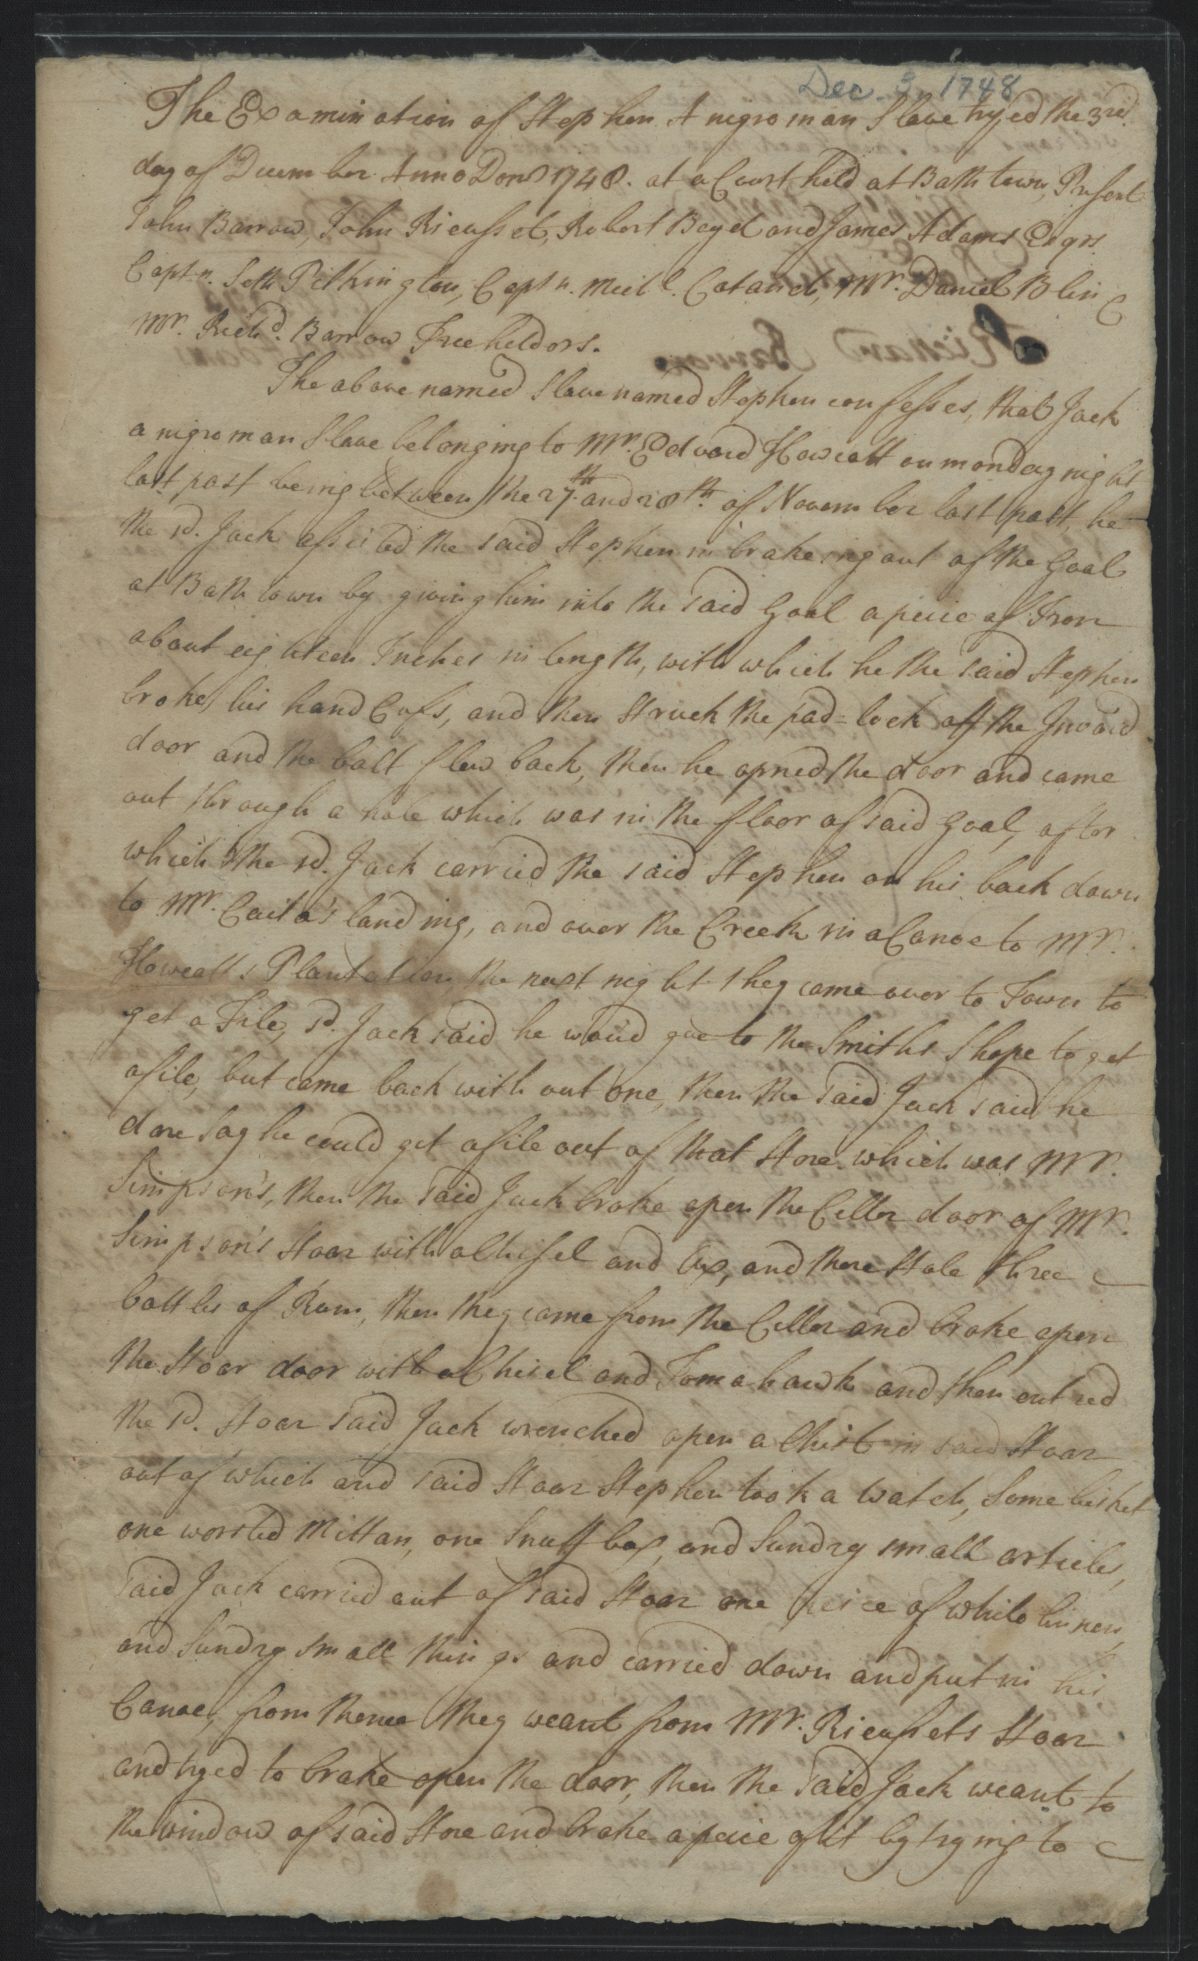 Dec. 3, 1748
The Examination of Stephen A nigro man Slave tryed the 3rd.
day of Decem ber Anno Dom 1748. at a Court held at Bath town, Present
John Barrow, John Rieusset, Robert Boyd and James Adams Esqrs.
Captn. Seth Pilkington, Captn. Mich. Cotanch, Mr. Daniel Blin &
Mr. Richd. Barrow Freeholdors.
The above named Slave named Stephen confesses, that Jack
a nigro man Slave belonging to Mr. Edward Howcott on monday night
last past being between the 27th and 28th. of Novem ber last past, he
the sd. Jack assisted the said Stephen in brakeing out of the Goal
at Bath town by giving him into the said Goal a peice of Iron
about eighteen Inches in length, with which he the said Stephen
broke, his hand Cufs, and then struck the pad=lock off the Inward
door and the bolt flew back, then he opned the door and came
out through a hole which was in the floor of said Goal, after
which the sd. Jack carried the said Stephen on his back down
to Mr. landing, and over the Creek in a Canoe to Mr.
Howcotts Plantation, the next night they came over to Town to
get a File, sd. Jack said he woud goe to the Smiths Shope to get
a file, but came back with out one, then the said Jack said he
dare say he could get a file out of that Store which was Mr.
Simpson's, then the said Jack broke open the Celler door of Mr.
Simpson's Stoar with a Chisel and Ax, and there Stole three
bottles of Rum, then they came from the Celler and broke open
the Stoar door with a Chisel and Tomahawk and then entred
the sd. Stoar said Jack wrenched open a Chist in said Stoar
out of which and said Stoar Stephen took a Watch, Some bisket
one worsted Mittan, one Snuff box, and Sundry small articles,
said Jack carried out of said Stoar one peice of white linnen,
and Sundry Small things and carried down and put in his
Canoe, from thence they weant from Mr. Rieussets Stoar
and tryed to brake open the door, then the said Jack weant to
the window of said Store and brake a peice of it by trying to
Richard Barrow